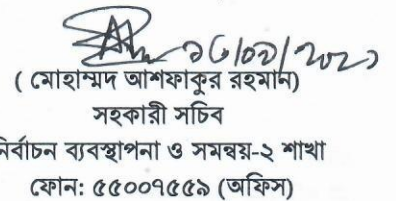 (মোহাম্মদ আশফাকুর রহমান)
সহকারী সচিব
নির্বাচন ব্যবস্থাপনা ও সমন্বয়-২ শাখা
ফোন: ৫৫০০৭৫৫৯ (অফিস)